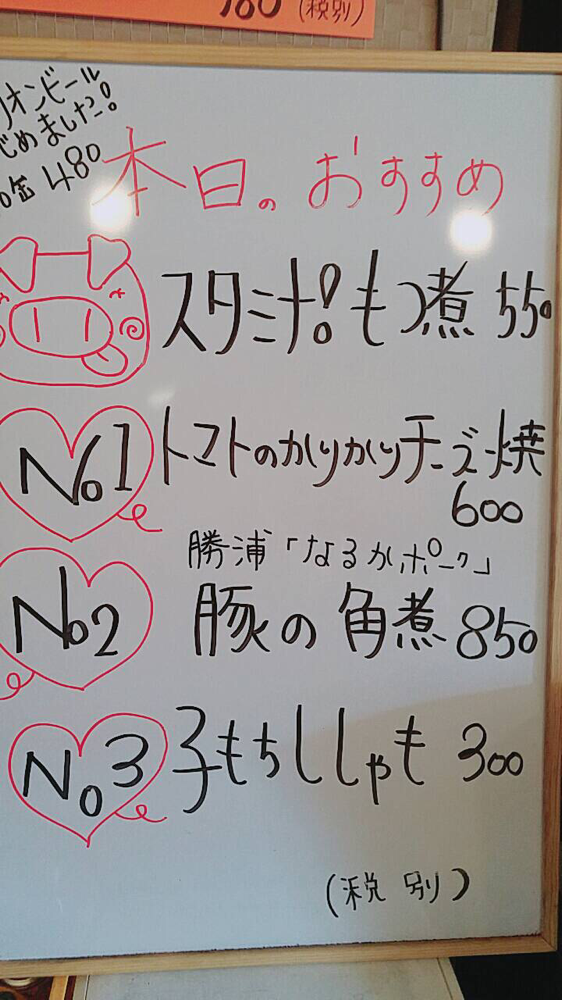 780 (税別)
リオンビール
じめました!
缶 480
本日のおすすめ
スタミナ!もつ煮 550
No1 トマトのかりかりチーズ焼
600
勝浦「なるかポーク」
No2 豚の角煮 850
No3 子もちししゃも 300
(税別)